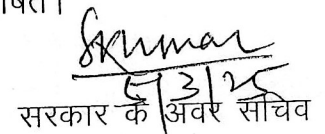 SKumar
5/3/25
सरकार के अवर सचिव